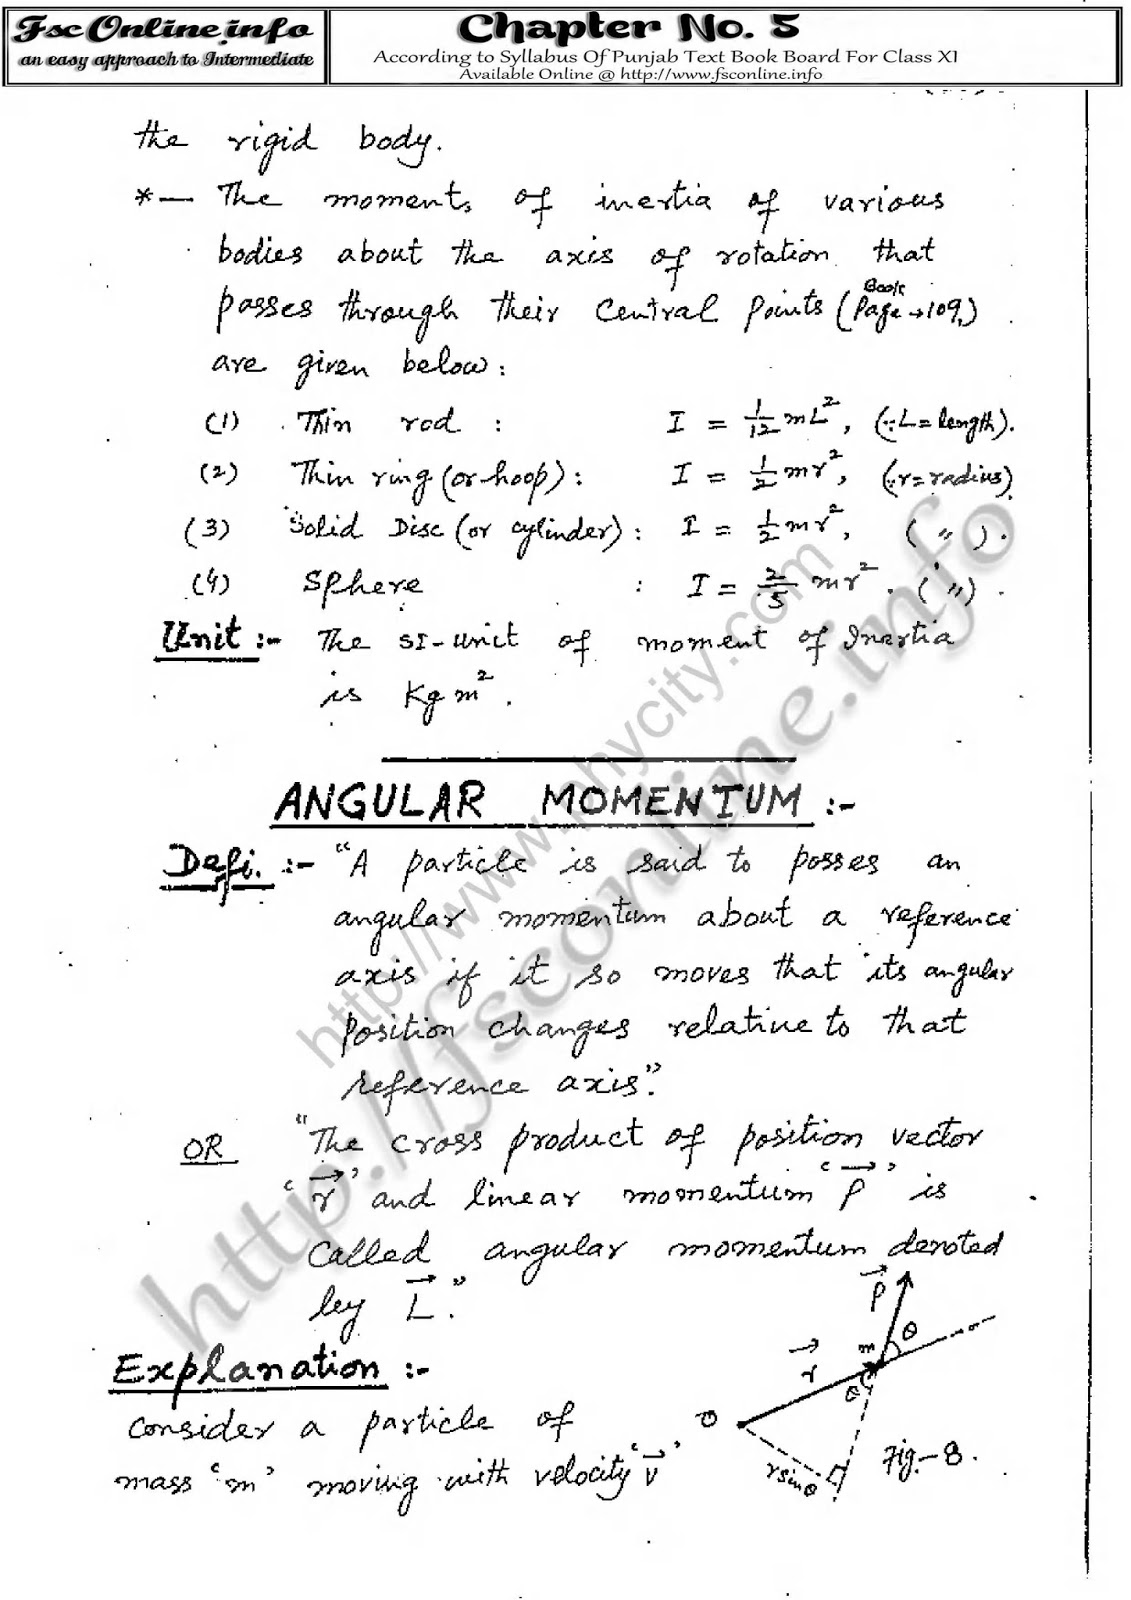 Fsc Online.info
an easy approach to Intermediate
Chapter No. 5
According to Syllabus Of Punjab Text Book Board For Class XI
Available Online @ http://www.fsconline.info
the rigid body.
*— The moments of inertia of various
bodies about the axis of rotation that
passes through their central points (Book Page → 109)
are given below:
(1) Thin rod : I = 1/12 mL², (∵ L = length).
(2) Thin ring (or hoop): I = 1/2 mr², (∵ r = radius)
(3) Solid Disc (or cylinder): I = 1/2 mr², ( " ).
(4) Sphere : I = 2/5 mr². ( " ).
Unit :- The SI-unit of moment of Inertia
is Kg m².
ANGULAR MOMENTUM :-
Defi. :- "A particle is said to posses an
angular momentum about a reference
axis if it so moves that its angular
position changes relative to that
reference axis."
OR "The cross product of position vector
'r⃗' and linear momentum 'p⃗' is
called angular momentum denoted
by L⃗."
Explanation :-
Consider a particle of
mass 'm' moving with velocity 'v⃗'
p⃗
θ
m
r⃗
θ
O
r sinθ
Fig.-8.
http://www.mhycity.com
http://fsconline.info